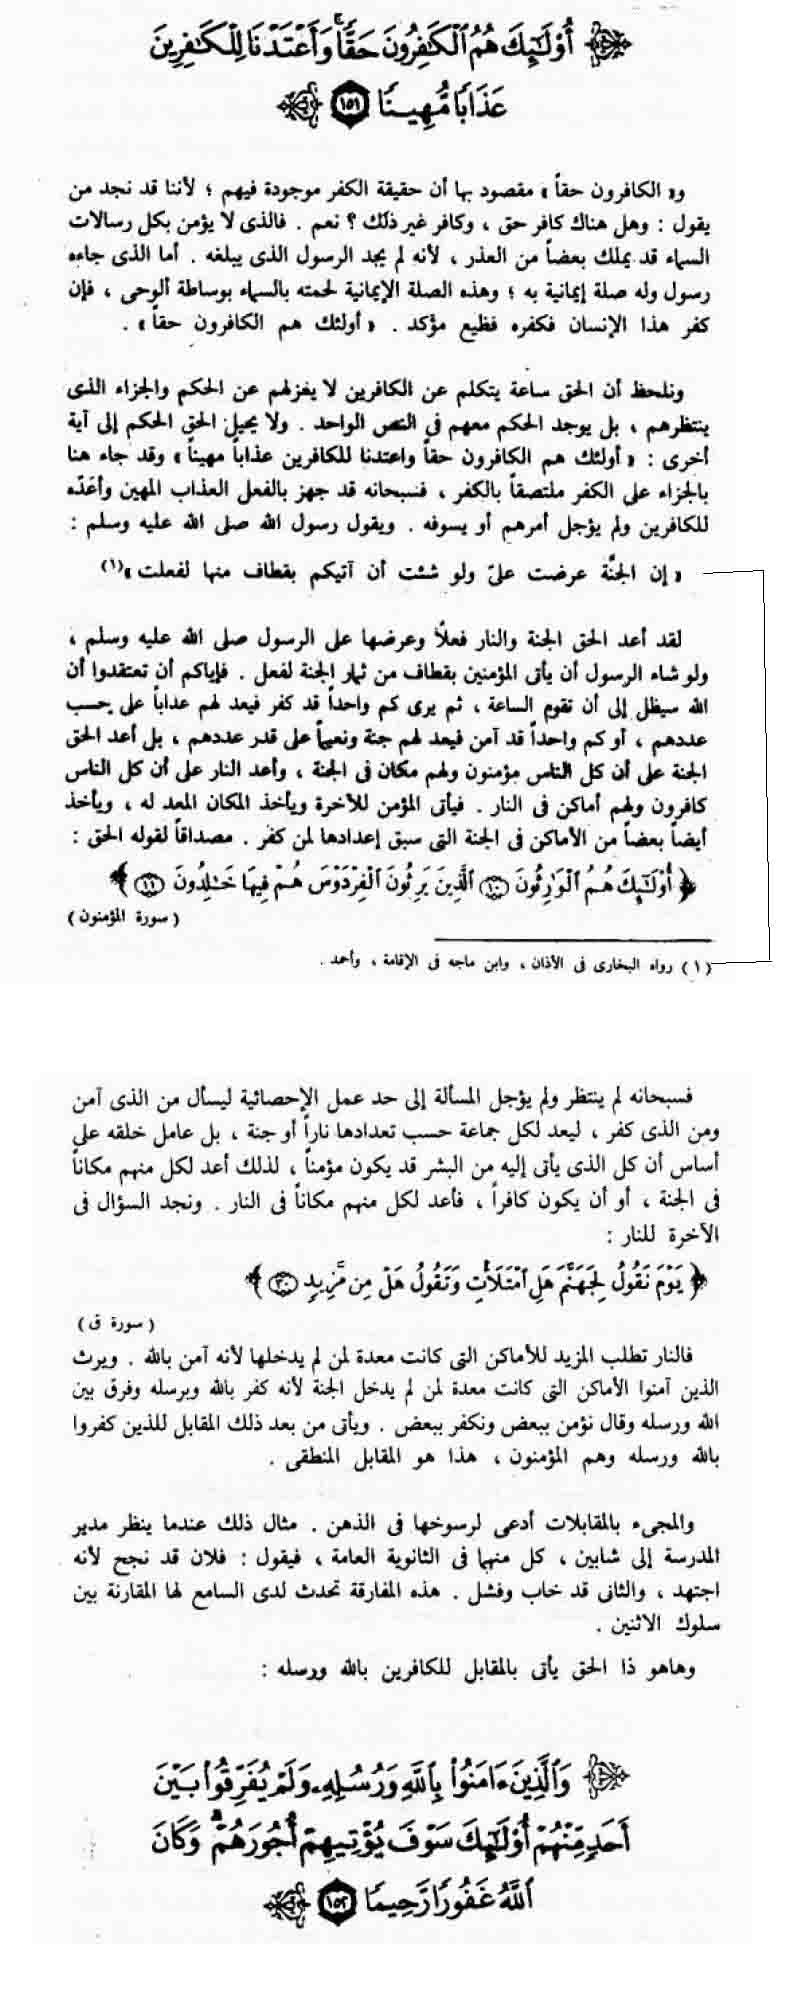 أُوْلَٰٓئِكَ هُمُ ٱلْكَٰفِرُونَ حَقًّا وَأَعْتَدْنَا لِلْكَٰفِرِينَ
عَذَابًا مُّهِينًا ١٥١
و« الكافرون حقاً » مقصود بها أن حقيقة الكفر موجودة فيهم ؛ لأننا قد نجد من
يقول : وهل هناك كافر حق ، وكافر غير ذلك ؟ نعم . فالذى لا يؤمن بكل رسالات
السماء قد يملك بعضاً من العذر ، لأنه لم يجد الرسول الذى يبلغه . أما الذى جاءه
رسول وله صلة إيمانية به ؛ وهذه الصلة الإيمانية لحمته بالسماء بوساطة الوحى ، فإن
كفر هذا الإنسان فكفره فظيع مؤكد . « أولئك هم الكافرون حقاً » .
ونلحظ أن الحق ساعة يتكلم عن الكافرين لا يعزلهم عن الحكم والجزاء الذى
ينتظرهم ، بل يوجد الحكم معهم فى النص الواحد . ولا يحيل الحق الحكم إلى آية
أخرى : « أولئك هم الكافرون حقاً واعتدنا للكافرين عذاباً مهيناً » وقد جاء هنا
بالجزاء على الكفر ملتصقاً بالكفر ، فسبحانه قد جهز بالفعل العذاب المهين وأعَدّه
للكافرين ولم يؤجل أمرهم أو يسوفه . ويقول رسول الله صلى الله عليه وسلم :
« إن الجنَّة عرضت علىّ ولو شئت أن آتيكم بقطاف منها لفعلت »(١)
لقد أعد الحق الجنة والنار فعلاً وعرضها على الرسول صلى الله عليه وسلم ،
ولو شاء الرسول أن يأتى المؤمنين بقطاف من ثمار الجنة لفعل . فإياكم أن تعتقدوا أن
الله سيظل إلى أن تقوم الساعة ، ثم يرى كم واحداً قد كفر فيعد لهم عذاباً على حسب
عددهم ، أو كم واحداً قد آمن فيعد لهم جنة ونعيماً على قدر عددهم ، بل أعد الحق
الجنة على أن كل الناس مؤمنون ولهم مكان فى الجنة ، وأعد النار على أن كل الناس
كافرون ولهم أماكن فى النار . فيأتى المؤمن للآخرة ويأخذ المكان المعد له ، ويأخذ
أيضاً بعضاً من الأماكن فى الجنة التى سبق إعدادها لمن كفر . مصداقاً لقوله الحق :
﴿ أُوْلَٰٓئِكَ هُمُ ٱلْوَٰرِثُونَ ١٠ ٱلَّذِينَ يَرِثُونَ ٱلْفِرْدَوْسَ هُمْ فِيهَا خَٰلِدُونَ ١١ ﴾
( سورة المؤمنون )
( ١ ) رواه البخارى فى الأذان ، وابن ماجه فى الإقامة ، وأحمد .
فسبحانه لم ينتظر ولم يؤجل المسألة إلى حد عمل الإحصائية ليسأل من الذى آمن
ومن الذى كفر ، ليعد لكل جماعة حسب تعدادها ناراً أو جنة ، بل عامل خلقه على
أساس أن كل الذى يأتى إليه من البشر قد يكون مؤمناً ، لذلك أعد لكل منهم مكاناً
فى الجنة ، أو أن يكون كافراً ، فأعد لكل منهم مكاناً فى النار . ونجد السؤال فى
الآخرة للنار :
﴿ يَوْمَ نَقُولُ لِجَهَنَّمَ هَلِ ٱمْتَلَأْتِ وَتَقُولُ هَلْ مِن مَّزِيدٍ ٣٠ ﴾
( سورة ق )
فالنار تطلب المزيد للأماكن التى كانت معدة لمن لم يدخلها لأنه آمن بالله . ويرث
الذين آمنوا الأماكن التى كانت معدة لمن لم يدخل الجنة لأنه كفر بالله وبرسله وفرق بين
الله ورسله وقال نؤمن ببعض ونكفر ببعض . ويأتى من بعد ذلك المقابل للذين كفروا
بالله ورسله وهم المؤمنون ، هذا هو المقابل المنطقى .
والمجىء بالمقابلات أدعى لرسوخها فى الذهن . مثال ذلك عندما ينظر مدير
المدرسة إلى شابين ، كل منهما فى الثانوية العامة ، فيقول : فلان قد نجح لأنه
اجتهد ، والثانى قد خاب وفشل . هذه المفارقة تحدث لدى السامع لها المقارنة بين
سلوك الاثنين .
وهاهو ذا الحق يأتى بالمقابل للكافرين بالله ورسله :
وَٱلَّذِينَ ءَامَنُوا۟ بِٱللَّهِ وَرُسُلِهِۦ وَلَمْ يُفَرِّقُوا۟ بَيْنَ
أَحَدٍ مِّنْهُمْ أُوْلَٰٓئِكَ سَوْفَ يُؤْتِيهِمْ أُجُورَهُمْ ۗ وَكَانَ
ٱللَّهُ غَفُورًا رَّحِيمًا ١٥٢